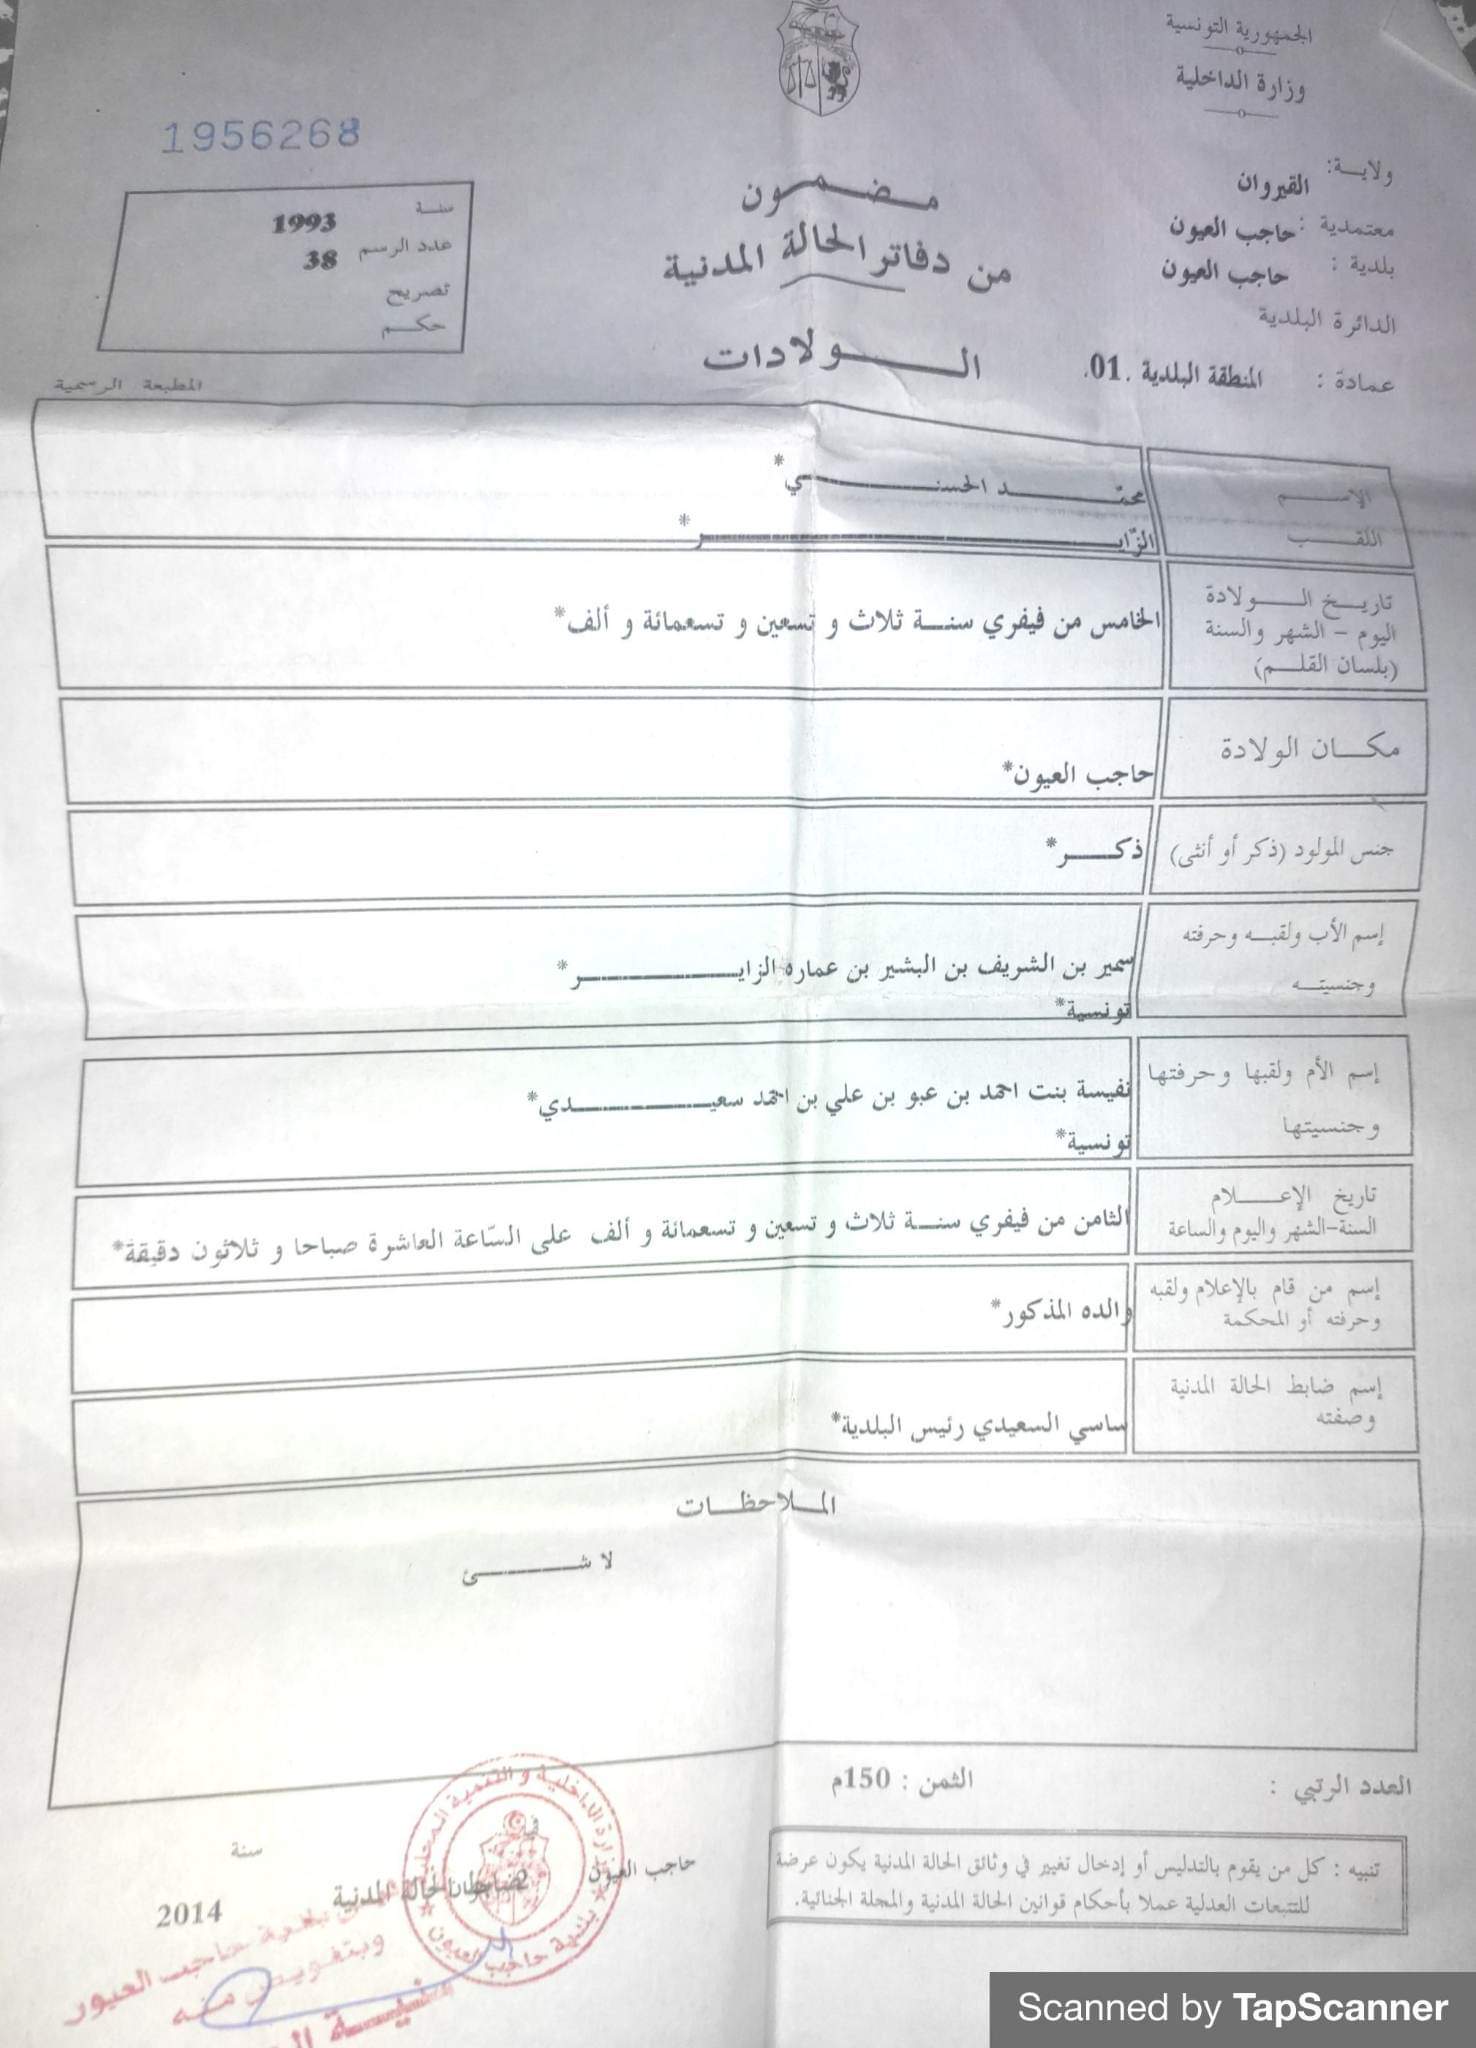 الجمهورية التونسية
وزارة الداخلية
ولايـة: القيروان
معتمدية : حاجب العيون
بلدية : حاجب العيون
الدائرة البلدية
عمادة : المنطقة البلدية .01.
مـضـمـون
من دفاتر الحالة المدنية
الـولادات
1956268
سنة 1993
عدد الرسم 38
تصريح
حكـم
المطبعة الرسمية
الاسـم محمّـد الحسنـي*
اللقـب الزّايـر*
تاريـخ الـولادة
اليوم - الشهر والسنة
(بلسان القلـم)
الخامس من فيفري سنـة ثلاث و تسعين و تسعمائة و ألف*
مكـان الولادة
حاجب العيون*
جنس المولود (ذكر أو أنثى)
ذكـر*
إسم الأب ولقبـه وحرفته
وجنسيتـه
سمير بن الشريف بن البشير بن عماره الزايـر*
تونسية*
إسم الأم ولقبها وحرفتها
وجنسيتها
نفيسة بنت احمد بن عبو بن علي بن احمد سعيـدي*
تونسية*
تاريخ الإعـلام
السنة-الشهر واليوم والساعة
الثامن من فيفري سنـة ثلاث و تسعين و تسعمائة و ألف على السّاعة العاشرة صباحا و ثلاثون دقيقة*
إسم من قام بالإعلام ولقبه
وحرفته أو المحكمة
والده المذكور*
إسم ضابط الحالة المدنية
وصفته
ساسي السعيدي رئيس البلدية*
الملاحظـات
لا شـئ
العدد الرتبي :
الثمن : 150م
تنبيه : كل من يقوم بالتدليس أو إدخال تغيير في وثائق الحالة المدنية يكون عرضة
للتتبعات العدلية عملا بأحكام قوانين الحالة المدنية والمجلة الجنائية.
حاجب العيون في
سنة
2014
ضابط الحالة المدنية
وزارة الداخلية و التنمية المحلية
بلدية حاجب العيون
بلدية حاجب العيون
وبتفويض منه
Scanned by TapScanner